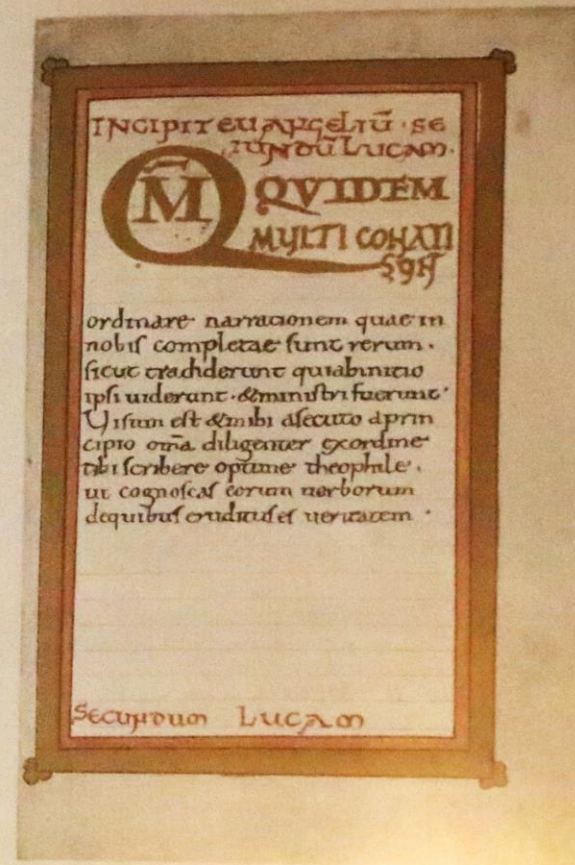 INCIPIT EUANGELIŪ · SE
CUNDŪ LUCAM ·
QM̄ QVIDEM
MULTI CONATI
SUN
ordinare narrationem quae in
nobis completae sunt rerum ·
sicut tradiderunt qui ab initio
ipsi uiderunt · & ministri fuerunt ·
Uisum est & mihi assecuto a prin
cipio om̄a diligenter ex ordine
tibi scribere optime theophile ·
ut cognoscas eorum uerborum
de quibus eruditus es ueritatem ·
SECUNDUM LUCAM